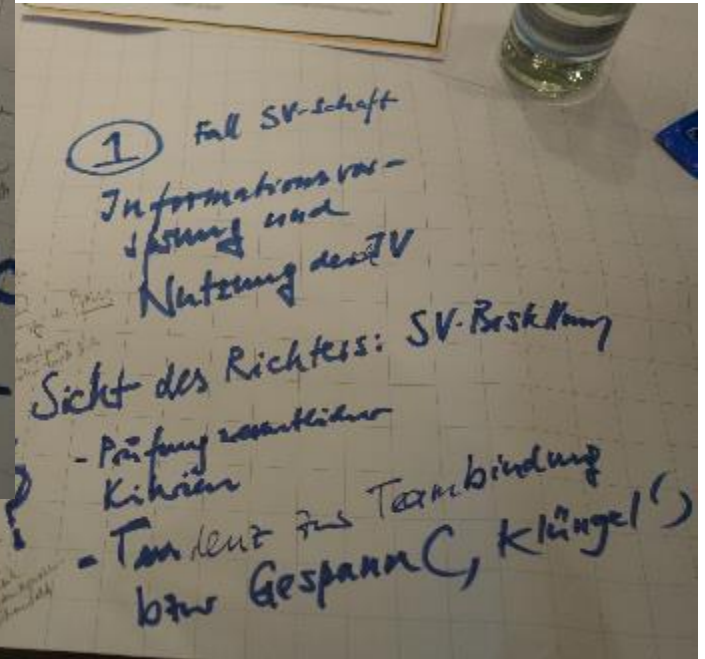 1 Fall SV-Schaft
Informationsvor-
und
Nutzung der IV
Sicht des Richters: SV-Bestellung
- Prüfung
Kriterien
- Tendenz zur Teambindung
bzw Gespann (, Klüngel')
?